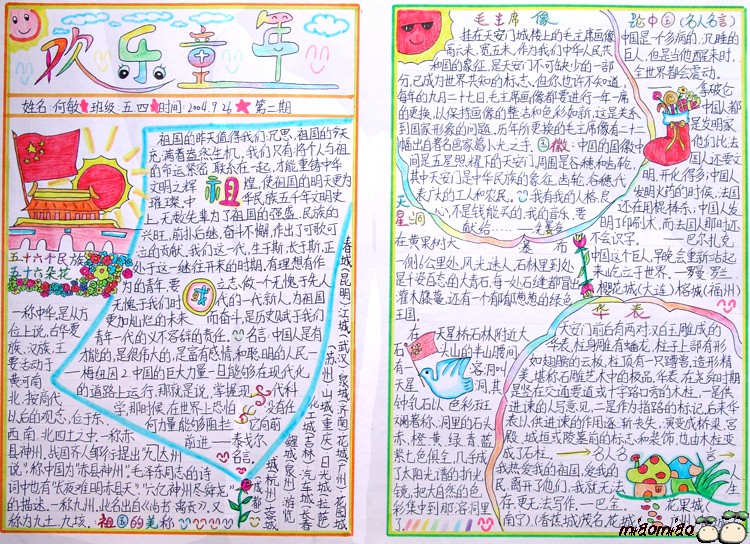 欢乐童年
姓名:何敏 班级 五四 时间:2004.9.26 第二期
祖国的昨天值得我们沉思,祖国的今天
充满着盎然生机,我们只有将个人与祖
的命运紧密联系在一起,才能重铸中华
文明之辉煌,使祖国的明天更为
璀璨.中华民族五千年文明史
上,无数先辈为了祖国的强盛、民族的
兴旺,前扑后继,奋不惭,作出了可歌可
泣的贡献。我们这一代,生于斯,长于斯,正
处于这一继往开来的时期。有理想有作
为的青年,要立志,做一个无愧于先人
无愧于我们时代的一代新人,为祖国
更加灿烂的未来而奋斗,是历史赋于我们
青年一代的义不容辞的责任。名言:中国是有
才能的,是很伟大的,是富有感情,和聪明的人民—
—梅纽因 2.中国的巨大力量一旦能够在现代化
的道路上运行,那就是说,掌握现代科
学,那时候,在世界上恐怕没有任
何力量能够阻止它的
前进——泰戈尔
祖
国
五十六个民族
五十六朵花
一称中华,是从方
位上说,古华夏
族、汉族,主
要活动于
黄河南
北,按周代
以后的观念,位于东、
西、南、北四土之中,一称赤
县神州,战国齐人邹衍提出“九大州
说”,称中国为“赤县神州”毛泽东同志的诗
词中也有“长夜难明赤县天”、“六亿神州尽舜尧”
的描述。一称九州,
称为九土、九垓。祖国69美称
毛主席像
挂在天安门城楼上的毛主席画像
高六米,宽五米,作为我们中华人民共
和国的象征,是天安门不可缺少的一部
分,已成为世界共知的标志,但你也许不知道,
每年的九月二十七日,毛主席画像都要进行一年一席
的更换,以保持画像的整洁和色彩如新,这是关系
到国家形象的问题,历年所更换的毛主席像有二十二
幅出自著名画家葛小光之手。国徽:中国的国徽中
间是五星照耀下的天安门,周围是谷穗和齿轮,
其中天安门是中华民族的象征,齿轮、谷穗,代
表广大的工人和农民。我有我的人格,良
心,不是钱能买的,我的音乐,要
献给……—冼星海
论中国(名人名言)
中国是个多病的,沉睡的
巨人,但是当他醒来时,
全世界都会震动。
拿破仑
中国人都
是发明家,
他们比法
国人还要文
明、开化得多:中国人
发明火药的时候,法国
还在用棍棒杀,中国人发
明印刷术,而法国人那时还
不会识字。——巴尔扎克
中国这个巨人,早晚会重新站起
来,屹立于世界.—罗曼·罗兰
樱花城(大连)榕城(福州)
天星洞
在黄果树大瀑布
一侧6公里处,风光迷人,石林里到处
是千姿百态的大青石,每一处石缝都冒出
灌木藤蔓,还有一个郁郁葱葱的绿色
王国。
在天星桥石林附近大
石头山的半山腰间
有一溶洞叫
天星洞,其
钟乳石以色彩斑
斓著称,洞里的石头
赤、橙、黄、绿、青、蓝、
紫七色俱全,几乎成
了太阳光谱的折光
镜,把大自然的色
彩集中到那溶洞里
了。
华表
天安门前后有两对汉白玉雕成的
华表,柱身雕有蟠龙,柱子上部有形
如翅膀的云板,柱顶有一只蹲兽,造形精
美,堪称石雕艺术中的极品,华表,在尧舜时期
是竖在交通要道或十字路口旁的木柱,一是供
进谏的人写意见,二是作指路的标记,后来华
表从供进谏的作用逐渐丧失,演变成桥梁、宫
殿、城垣或陵墓前的标志和装饰,也由木柱变
成了石柱。名人名言
我热爱我的祖国,爱我的人
民,离开了他们,我就无法生
存,更无法写作,—巴金。
花果城
miaomiao